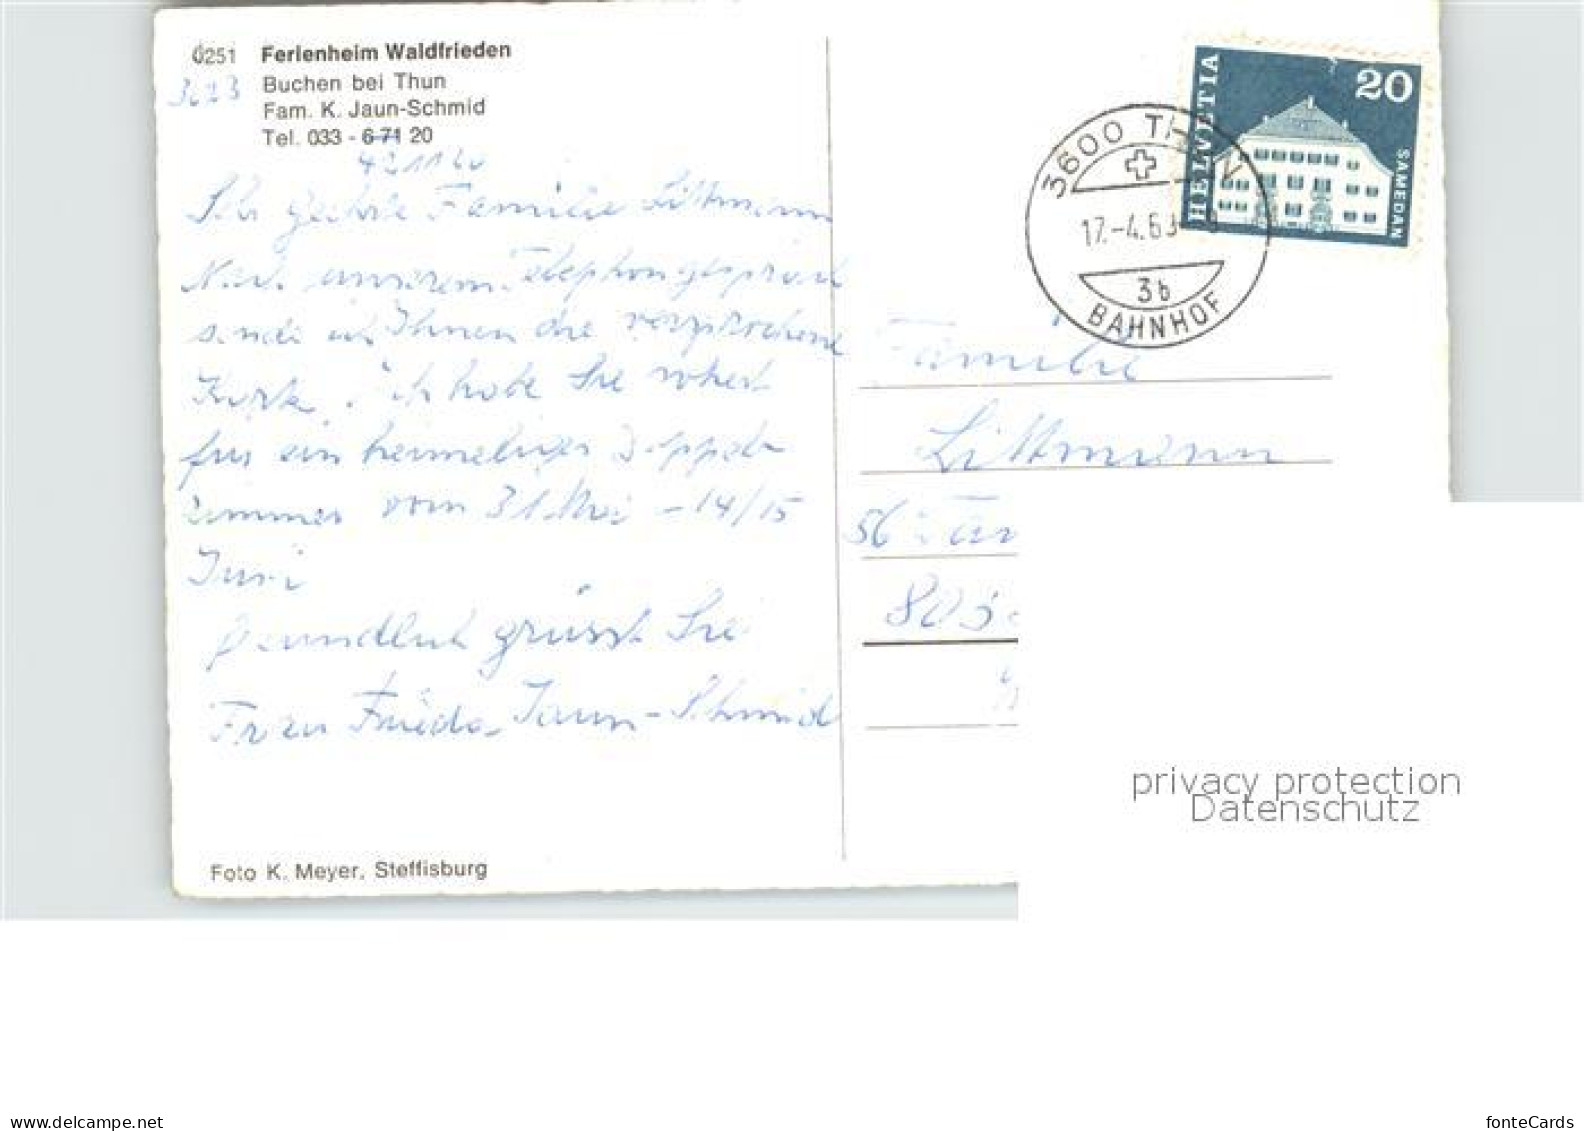 0251 Ferienheim Waldfrieden
3623 Buchen bei Thun
Fam. K. Jaun-Schmid
Tel. 033 - 6 71 20
Sehr geehrte Familie Littmann
Nach unserem Telephongespräch
sende ich Ihnen die versprochene
Karte. Ich habe Sie notiert
für ein heimeliges Doppel-
zimmer vom 31. Mai - 14/15
Juni
freundlich grüsst Sie
Frau Frieda Jaun-Schmid
Foto K. Meyer, Steffisburg
3600 THUN
17.-4.69
3b
BAHNHOF
HELVETIA
20
SAMEDAN
Familie
Littmann
56
privacy protection
Datenschutz
www.delcampe.net
fonteCards